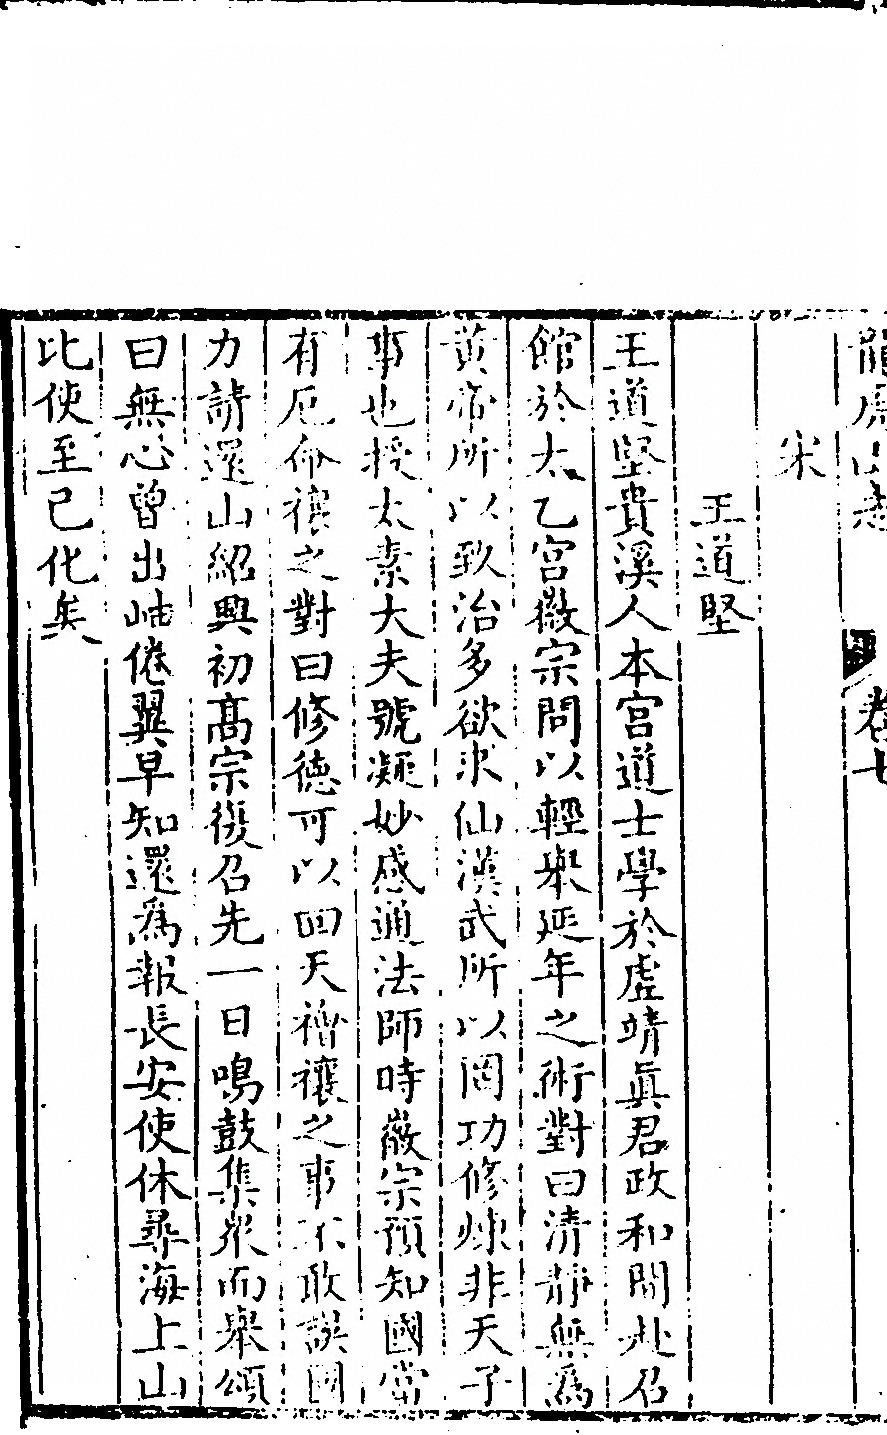 龍虎山志 卷七
宋
王道堅
王道堅貴溪人本宮道士學於虛靖眞君政和間赴召
館於太乙宮徽宗問以輕舉延年之術對曰清靜無爲
黃帝所以致治多欲求仙漢武所以罔功修煉非天子
事也授太素大夫號凝妙感通法師時徽宗預知國當
有厄命禳之對曰修德可以回天禬禳之事不敢誤國
力請還山紹興初高宗復召先一日鳴鼓集衆而舉頌
曰無心曾出岫倦翼早知還爲報長安使休尋海上山
比使至已化矣